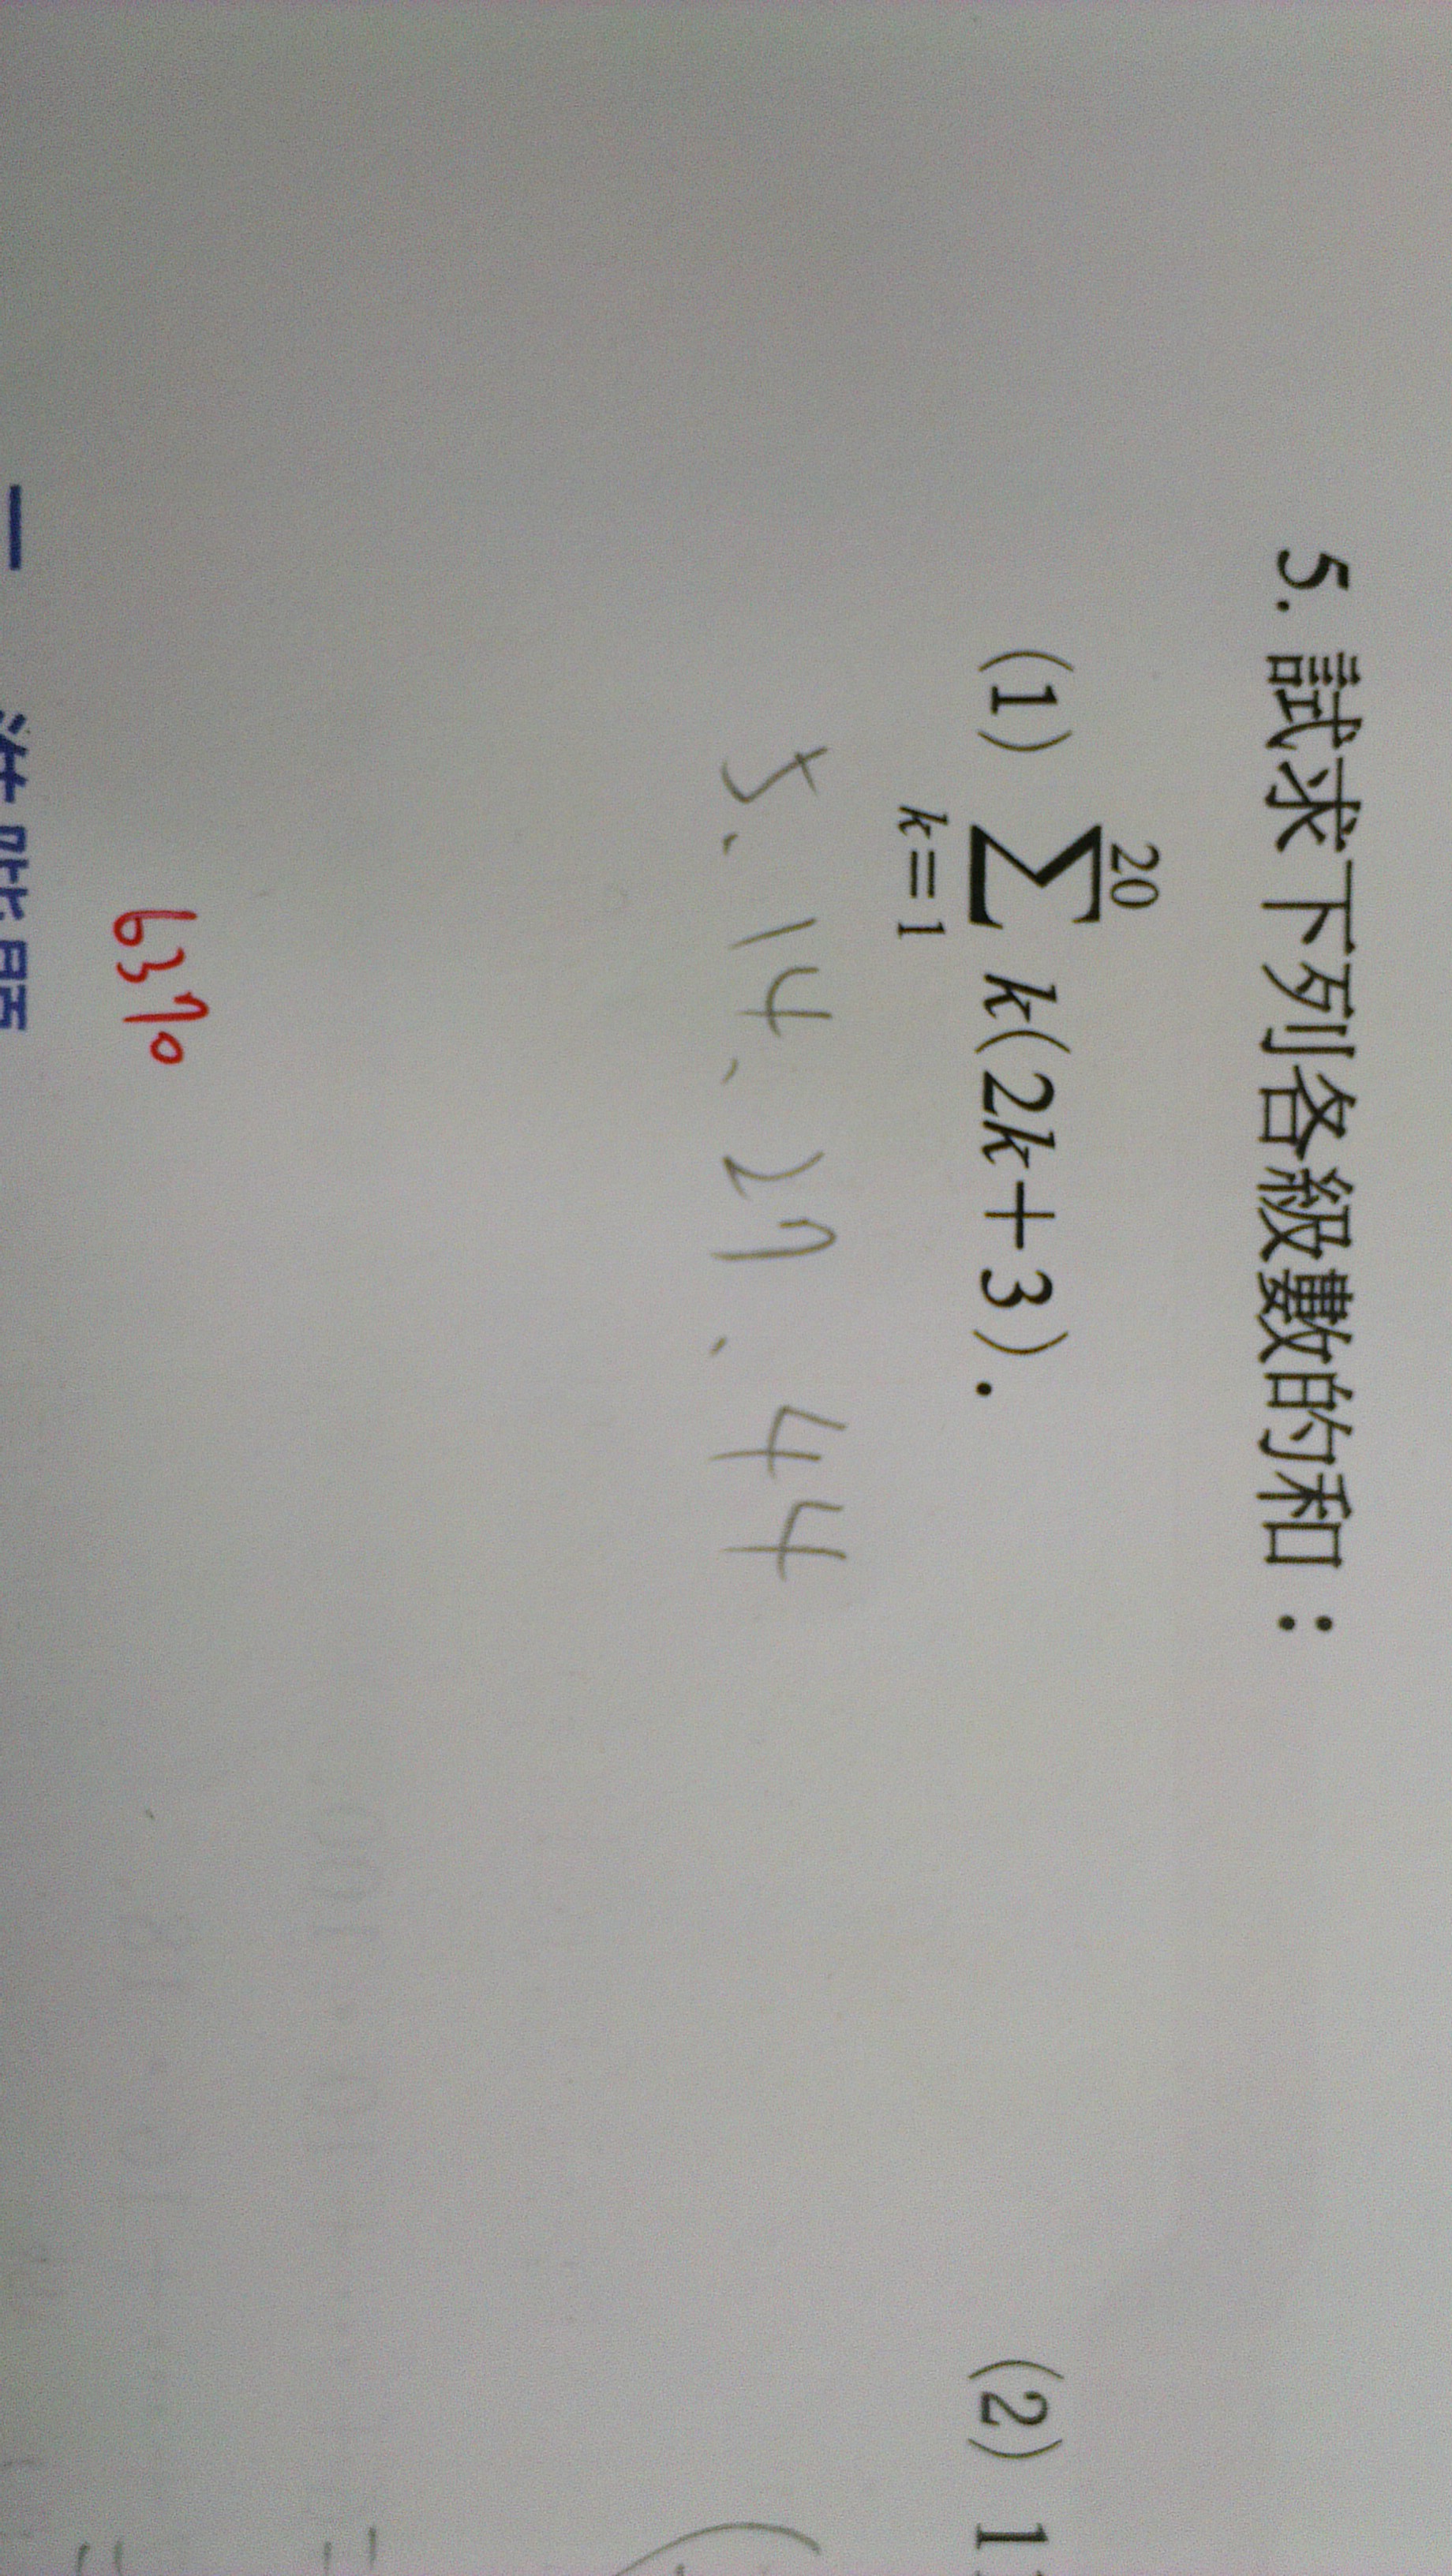 5. 試求下列各級數的和：
(1) 20∑k=1 k(2k+3). (2) 1
5、14、27、44
6370
一